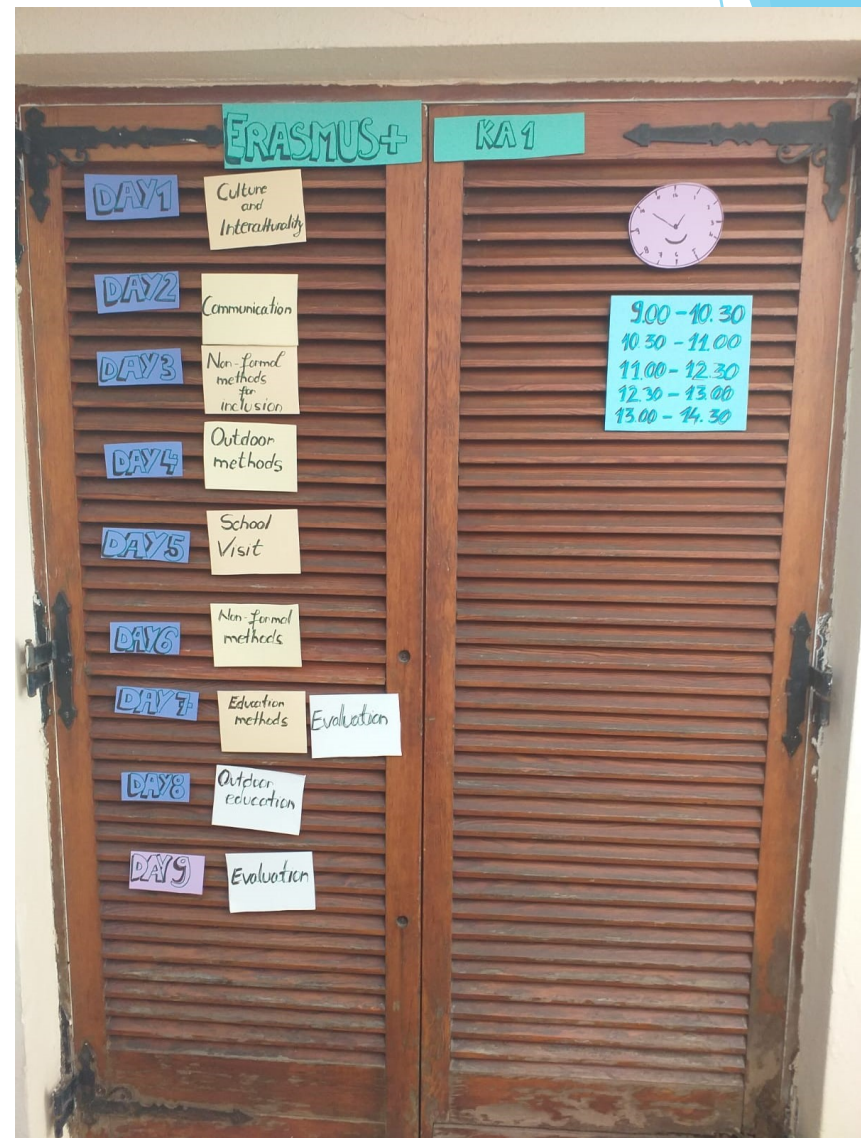 ERASMUS+ KA1
DAY1
Culture
and
Interculturality
DAY2
Communication
DAY3
Non-formal
methods
for
inclusion
DAY4
Outdoor
methods
DAY5
School
Visit
DAY6
Non-formal
methods
DAY7
Education
methods
Evaluation
DAY8
Outdoor
education
DAY9
Evaluation
9.00 - 10.30
10.30 - 11.00
11.00 - 12.30
12.30 - 13.00
13.00 - 14.30